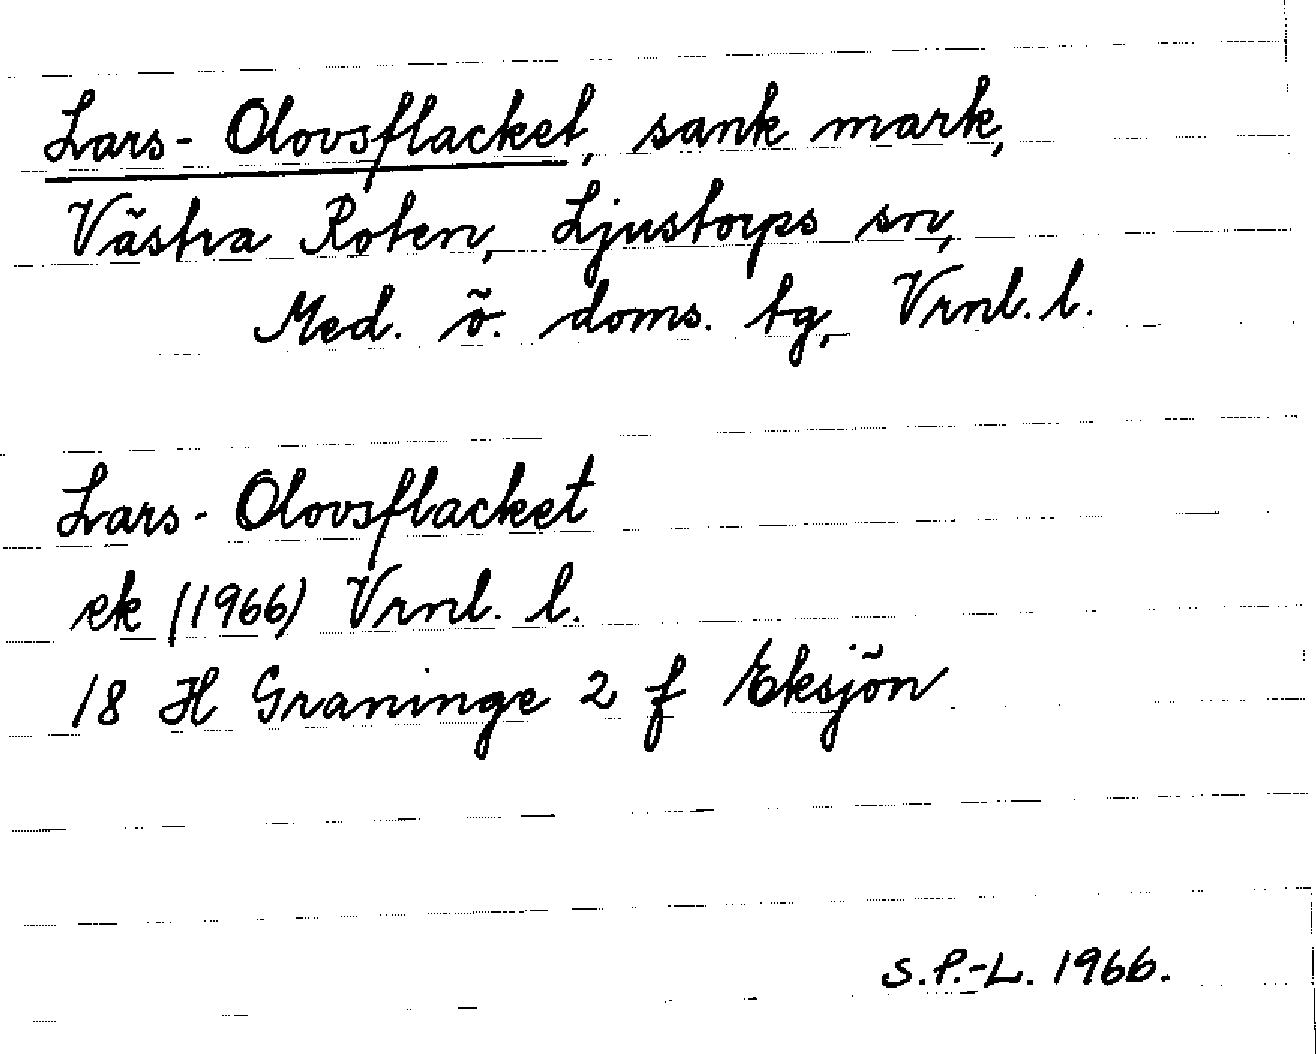 Lars-Olovsflacket, sank mark,
Västra Roten, Ljustorps sn,
Med. ö. doms. tg, Vrnl. l.
Lars-Olovsflacket
ek (1966) Vrnl. l.
18 H Graninge 2 f Eksjön
S.P.-L. 1966.